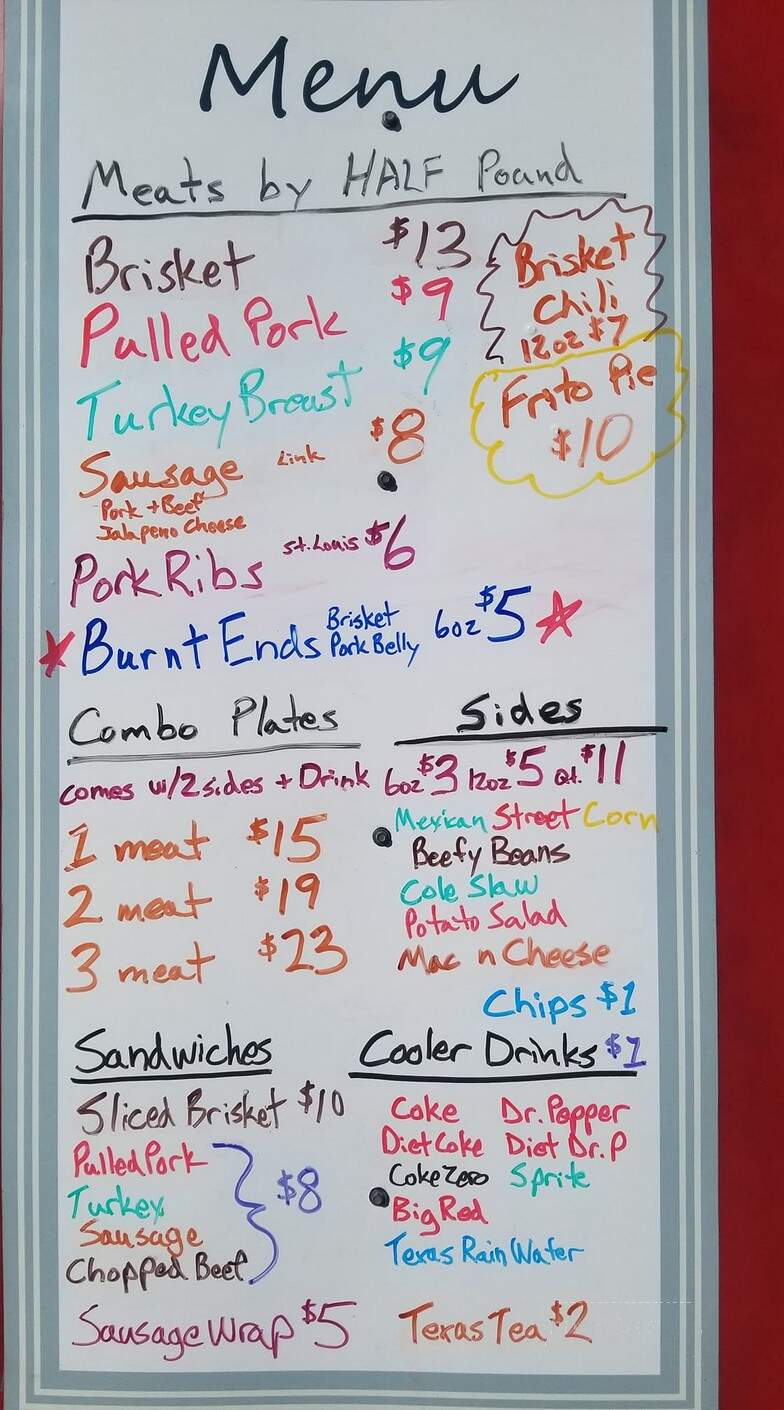 Menu
Meats by HALF Pound
Brisket $13
Pulled Pork $9
Turkey Breast $9
Sausage Link $8
Pork + Beef
Jalapeno Cheese
Pork Ribs St. Louis $6
Brisket
Chili
12oz $7
Frito Pie
$10
Burnt Ends Brisket Pork Belly 6oz $5
Combo Plates
comes w/2 sides + Drink
1 meat $15
2 meat $19
3 meat $23
Sides
6oz $3 12oz $5 Qt. $11
Mexican Street Corn
Beefy Beans
Cole Slaw
Potato Salad
Mac n Cheese
Chips $1
Sandwiches
Sliced Brisket $10
Pulled Pork
Turkey
Sausage
Chopped Beef
$8
Sausage Wrap $5
Cooler Drinks $1
Coke Dr. Pepper
Diet Coke Diet Dr. P
Coke Zero Sprite
Big Red
Texas Rain Water
Texas Tea $2